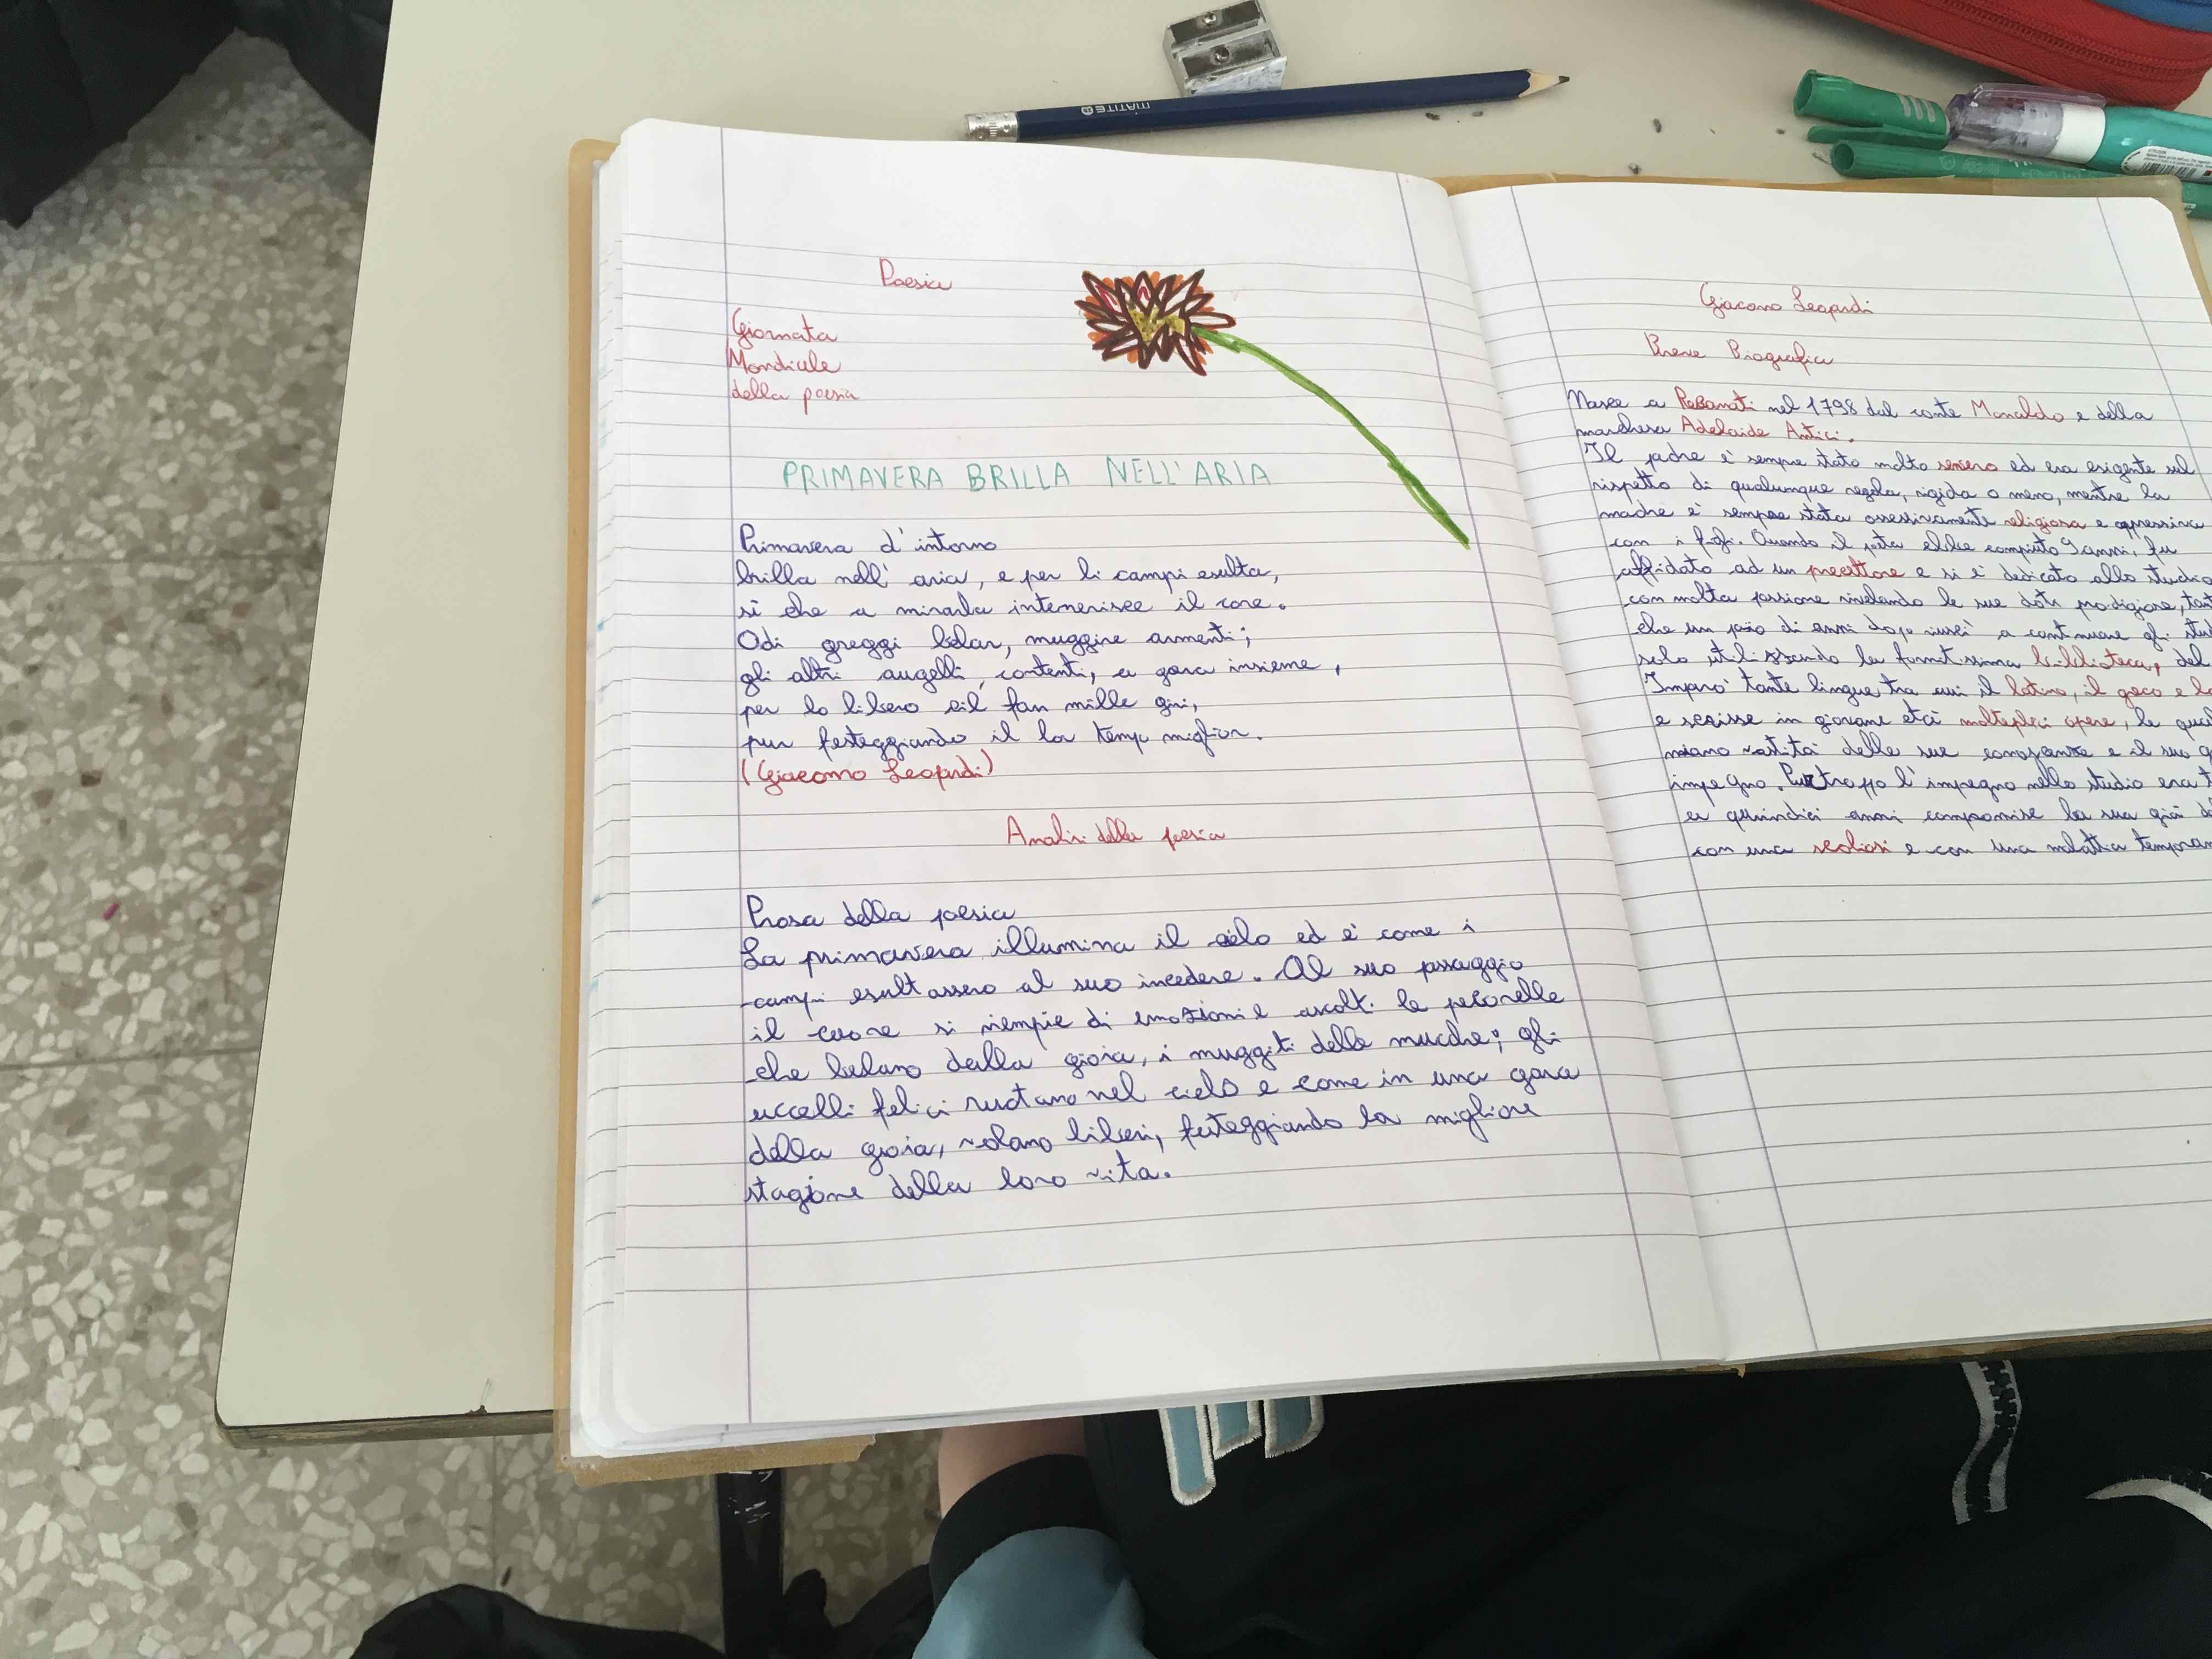 MATITE B
Poesia
Giornata
Mondiale
della poesia
PRIMAVERA BRILLA NELL'ARIA
Primavera d'intorno
brilla nell'aria, e per li campi esulta,
sì che a mirarla intenerisce il core.
Odi greggi belar, muggire armenti;
gli altri augelli, contenti, a gara insieme,
per lo libero ciel fan mille giri,
pur festeggiando il lor tempo miglior.
(Giacomo Leopardi)
Analisi della poesia
Prosa della poesia
La primavera illumina il cielo ed è come i
campi esultassero al suo incedere. Al suo passaggio
il cuore si riempie di emozioni e ascolti le pecorelle
che belano dalla gioia, i muggiti delle mucche; gli
uccelli felici ruotano nel cielo e come in una gara
della gioia, volano liberi, festeggiando la migliore
stagione della loro vita.
Giacomo Leopardi
Breve Biografia
Nasce a Recanati nel 1798 dal conte Monaldo e della
marchesa Adelaide Antici.
Il padre è sempre stato molto severo ed era esigente sul
rispetto di qualunque regola, rigida o meno, mentre la
madre è sempre stata ossessivamente religiosa e oppressiva
con i figli. Quando il poeta ebbe compiuto 9 anni, fu
affidato ad un precettore e si è dedicato allo studio
con molta passione rivelando le sue doti prodigiose, tant
che un paio di anni dopo riuscì a continuare gli stud
solo utilizzando la fornitissima biblioteca, del
Imparò tante lingue tra cui il latino, il greco e l
e scrisse in giovane età molteplici opere, le qual
vastità delle sue conoscenze e il suo g
impegno. Purtroppo l'impegno nello studio era t
a quindici anni compromise la sua già d
con una scoliosi e con una malattia temporan